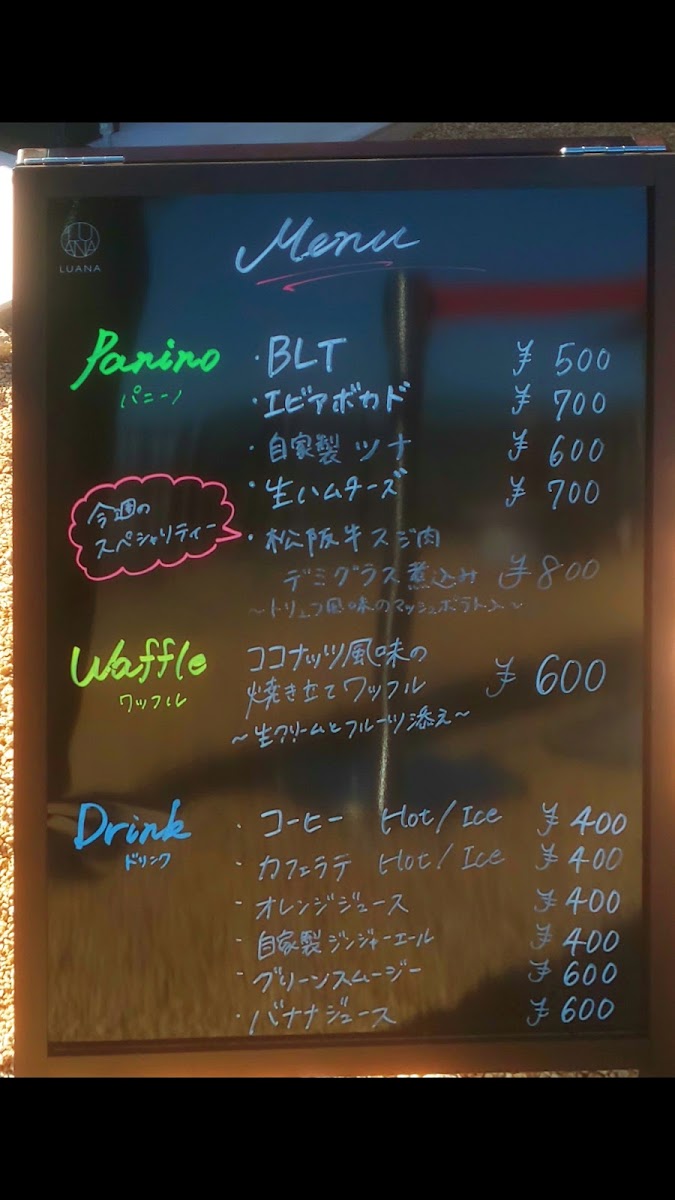 LUANA
LUANA
Menu
Panino
パニーノ
・BLT ¥500
・エビアボカド ¥700
・自家製ツナ ¥600
・生ハムチーズ ¥700
今週の
スペシャリティー
・松阪牛スジ肉
デミグラス煮込み ¥800
～トリュフ風味のマッシュポテト入～
Waffle
ワッフル
ココナッツ風味の
焼き立てワッフル ¥600
～生クリームとフルーツ添え～
Drink
ドリンク
・コーヒー Hot/Ice ¥400
・カフェラテ Hot/Ice ¥400
・オレンジジュース ¥400
・自家製ジンジャーエール ¥400
・グリーンスムージー ¥600
・バナナジュース ¥600